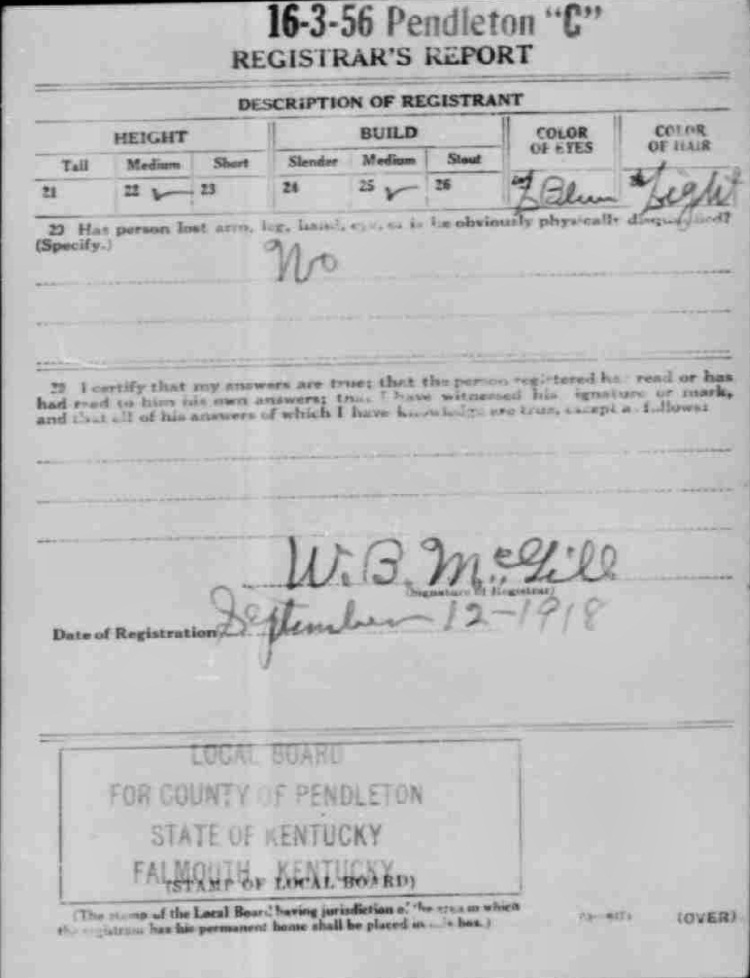 16-3-56 Pendleton "C"
REGISTRAR'S REPORT
DESCRIPTION OF REGISTRANT
HEIGHT BUILD COLOR OF EYES COLOR OF HAIR
Tall Medium Short Slender Medium Stout
21 22 ✓ 23 24 25 ✓ 26 27 Blue 28 Light
29 Has person lost arm, leg, hand, eye, or is he obviously physically disqualified?
(Specify.)
No
I certify that my answers are true; that the person registered has read or has
had read to him his own answers; that I have witnessed his signature or mark,
and that all of his answers of which I have knowledge are true, except as follows:
W. B. McGill
(Signature of Registrar)
Date of Registration September 12-1918
LOCAL BOARD
FOR COUNTY OF PENDLETON
STATE OF KENTUCKY
FALMOUTH, KENTUCKY
(STAMP OF LOCAL BOARD)
(The stamp of the Local Board having jurisdiction of the area in which
the registrant has his permanent home shall be placed in this box.)
(OVER)